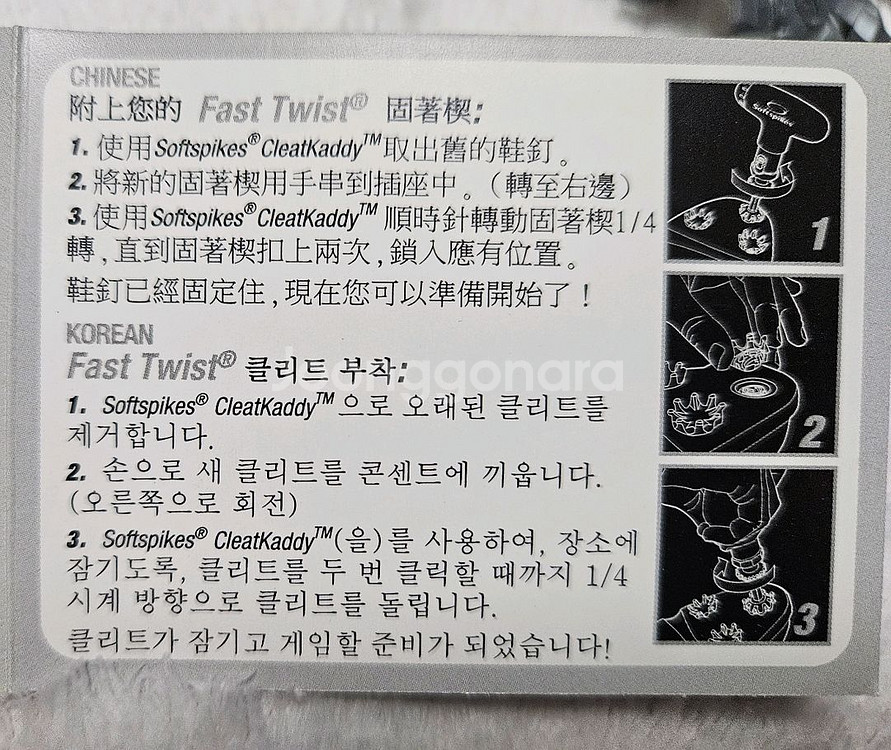 CHINESE
附上您的 Fast Twist® 固著楔:
1. 使用Softspikes® CleatKaddy™取出舊的鞋釘。
2. 將新的固著楔用手串到插座中。（轉至右邊）
3. 使用Softspikes® CleatKaddy™ 順時針轉動固著楔1/4
轉,直到固著楔扣上兩次,鎖入應有位置。
鞋釘已經固定住,現在您可以準備開始了！
KOREAN
Fast Twist® 클리트 부착:
1. Softspikes® CleatKaddy™으로 오래된 클리트를
제거합니다.
2. 손으로 새 클리트를 콘센트에 끼웁니다.
(오른쪽으로 회전)
3. Softspikes® CleatKaddy™(을)를 사용하여, 장소에
잠기도록, 클리트를 두 번 클릭할 때까지 1/4
시계 방향으로 클리트를 돌립니다.
클리트가 잠기고 게임할 준비가 되었습니다!
Softspikes
1
2
3
Joonggonara